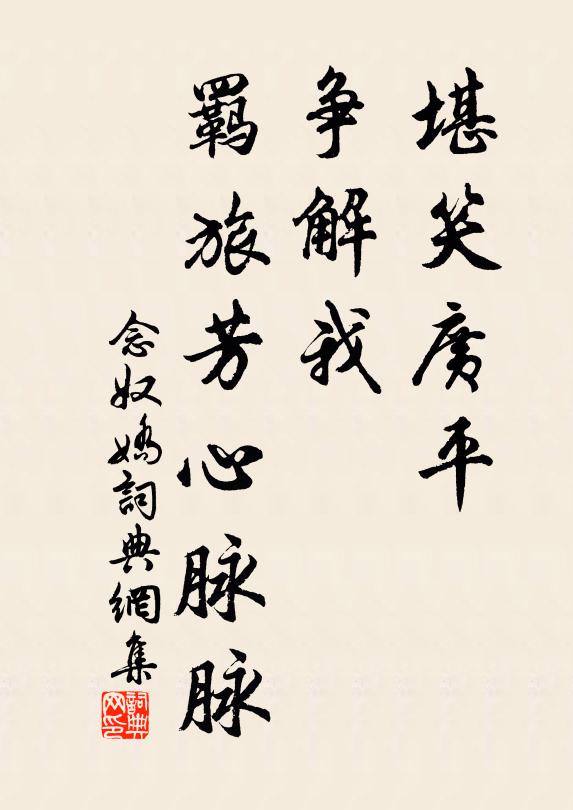 堪笑廣平
争解我
羈旅芳心脉脉
念奴嬌詞典網集
詞典网印